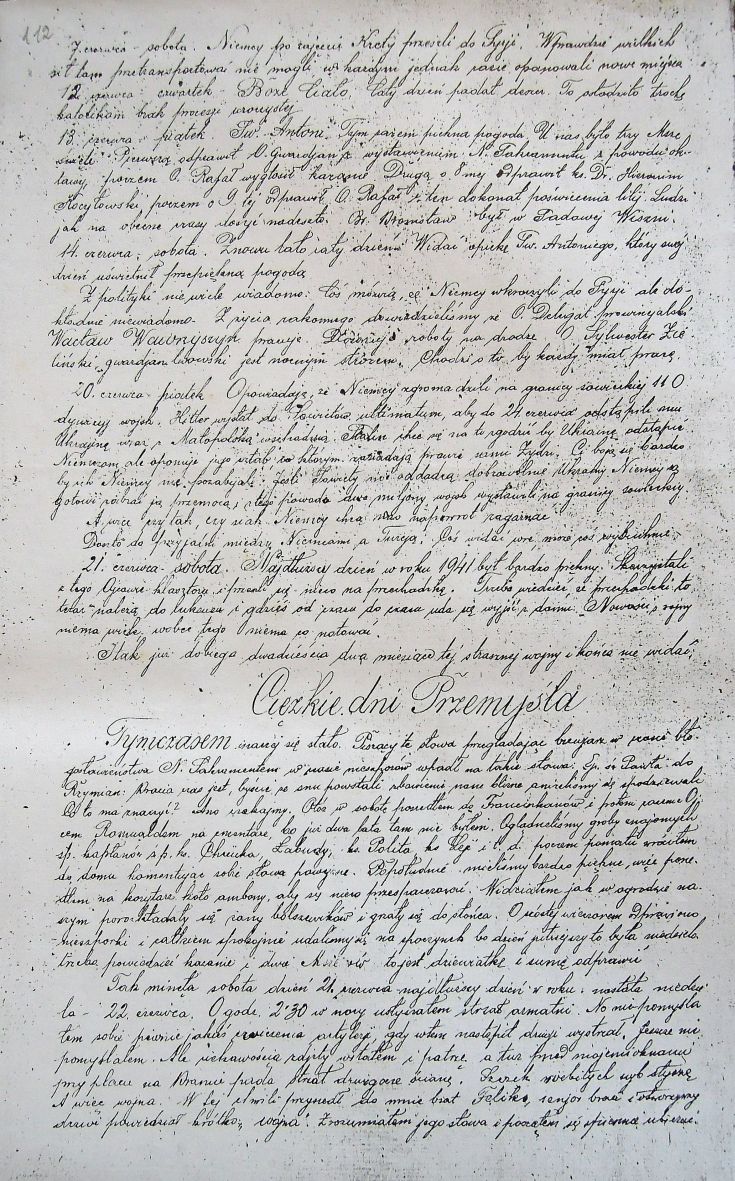 112
7 czerwca - sobota. Niemcy po zajęciu Krety przeszli do Syrji. Wprawdzie wielkich
sił tam przetransportować nie mogli w każdym jednak razie opanowali nowe miejsca
12 czerwca czwartek Boże Ciało, Cały dzień padał deszcz. To osłodziło trochę
katolikom brak procesji uroczystej
13 czerwca - piątek Św. Antoni. Tym razem piękna pogoda. U nas było trzy Msze
święte Pierwszą odprawił O. Gwardjan z wystawieniem N. Sakramentu z powodu ok-
tawy poczem O. Rafał wygłosił kazanie Drugą o 8mej odprawił ks. Dr. Hieronim
Kocyłowski poczem o 9tej odprawił O. Rafał i ten dokonał poświęcenia lilij. Ludzi
jak na obecne czasy dosyć nadeszło. Br. Bronisław był w Sadowej Wiszni.
14. czerwca, sobota. Znowu lało cały dzień. Widać opiekę Św. Antoniego, który swój
dzień uświetnił przepiękną pogodą
Z polityki niewiele wiadomo. Coś mówią, że Niemcy wkroczyli do Syrji ale do-
kładnie niewiadomo. Z życia zakonnego dowiedzieliśmy że O. Delegat prowincjalski
Wacław Wawryszyn pracuje roboty na drodze O. Sylwester Zie-
liński, gwardjan lwowski jest nocnym stróżem. Chodzi o to by każdy miał pracę.
20. czerwca - piątek Opowiadają, że Niemcy zgromadzili na granicy sowieckiej 110
dywizji wojsk. Hitler wysłał do Sowietów ultimatum, aby do 24 czerwca odstąpili mu
Ukrainę wraz z Małopolską wschodnią. Stalin chce się na to zgodzić by Ukrainę odstąpić
Niemcom, ale oponuje jego sztab w którym zasiadają prawie sami Żydzi. Ci boją się bardzo
by ich Niemcy nie pozabijali. Jeśli Sowiety nie oddadzą dobrowolnie Ukrainy Niemcy są
gotowi zabrać ją przemocą, z tego powodu dwa miljony wojsk wystawili na granicy sowieckiej.
A więc czy tak, czy siak Niemcy chcą nas napowrót zagarnąć
Doszło do przyjaźni między Niemcami a Turcją. Coś widać wre, może coś wybuchnie.
21. czerwca - sobota. Najdłuższy dzień w roku 1941 był bardzo piękny. Skorzystali
z tego Ojcowie klasztoru i przeszli się nieco na przechadzkę. Trzeba wiedzieć, że przechadzki to
teraz należą do luksusu i gdzieś od czasu do czasu uda się wyjść z domu. Nowości z wojny
niema wiele, wobec tego i niema co notować.
I tak już dobiega dwadzieścia dwa miesiące tej strasznej wojny i końca nie widać.
Ciężkie dni Przemyśla
Tymczasem inaczej się stało. Piszący te słowa przeglądając brewjarz w czasie bło-
gosławieństwa N. Sakramentem w czasie nieszporów wpadł na takie słowa: Ep. św. Pawła do
Rzymian: Bracia czas jest, byśmy ze snu powstali zbawienie nasze bliższe aniżeliśmy się spodziewali
Co to ma znaczyć? Ano czekajmy. Otóż w sobotę poszedłem do Franciszkanów i potem razem z Oj-
cem Romualdem na cmentarz, bo już dwa lata tam nie byłem. Oglądnęliśmy groby znajomych
śp. kapłanów ś.p. ks. Labudy, ks. Polita, ks. i t. d. poczem pomału wróciłem
do domu komentując sobie słowa powyższe. Popołudniu mieliśmy bardzo piękne, więc posze-
dłem na korytarz koło ambony, aby się nieco przespacerować. Widziałem jak w ogrodzie na-
szym porozkładały się żony bolszewików i grzały się do słońca. O szóstej wieczorem odprawiono
nieszporki i całkiem spokojnie udaliśmy się na spoczynek bo dzień jutrzejszy to była niedziela.
trzeba powiedzieć kazanie i dwie Msze św. to jest dziewiątkę i sumę odprawić.
Tak minęła sobota dzień 21. czerwca najdłuższy dzień w roku. nastała niedzie-
la - 22 czerwca. O godz. 2'30 w nocy usłyszałem strzał armatni. No nic pomyśla-
łem sobie pewnie jakieś ćwiczenia artylerji, gdy wtem nastąpił drugi wystrzał. Jeszcze nic
pomyślałem. Ale ciekawością zdjęty wstałem i patrzę, a tuż przed mojemi oknami
przy placu na Bramie pada strzał druzgocze ścianę. Brzęk rozbitych szyb słyszę
A więc wojna. W tej chwili przyszedł do mnie brat Feliks, senjor braci i otworzywszy
drzwi powiedział krótko: "wojna". Zrozumiałem jego słowa i począłem się śpiesznie ubierać.